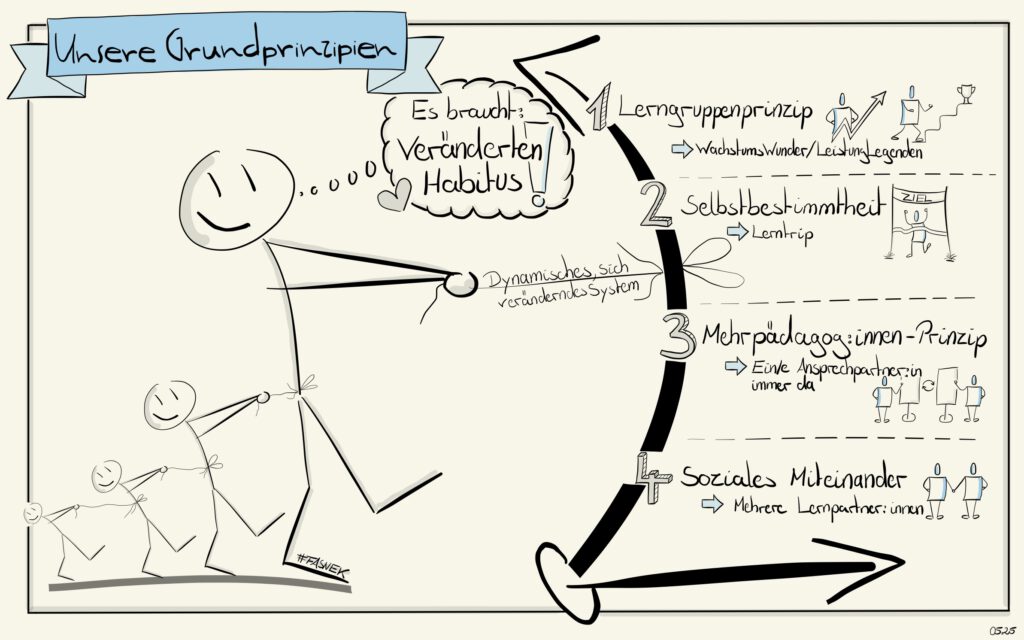 Unsere Grundprinzipien
Es braucht:
Veränderten
Habitus!
Dynamisches, sich
veränderndes System
1 Lerngruppenprinzip
WachstumsWunder/LeistungsLegenden
2 Selbstbestimmtheit
Lerntrip
ZIEL
3 Mehrpädagog:innen-Prinzip
Ein/e Ansprechpartner:in
immer da
4 Soziales Miteinander
Mehrere Lernpartner:innen
#FASNEK
05.25